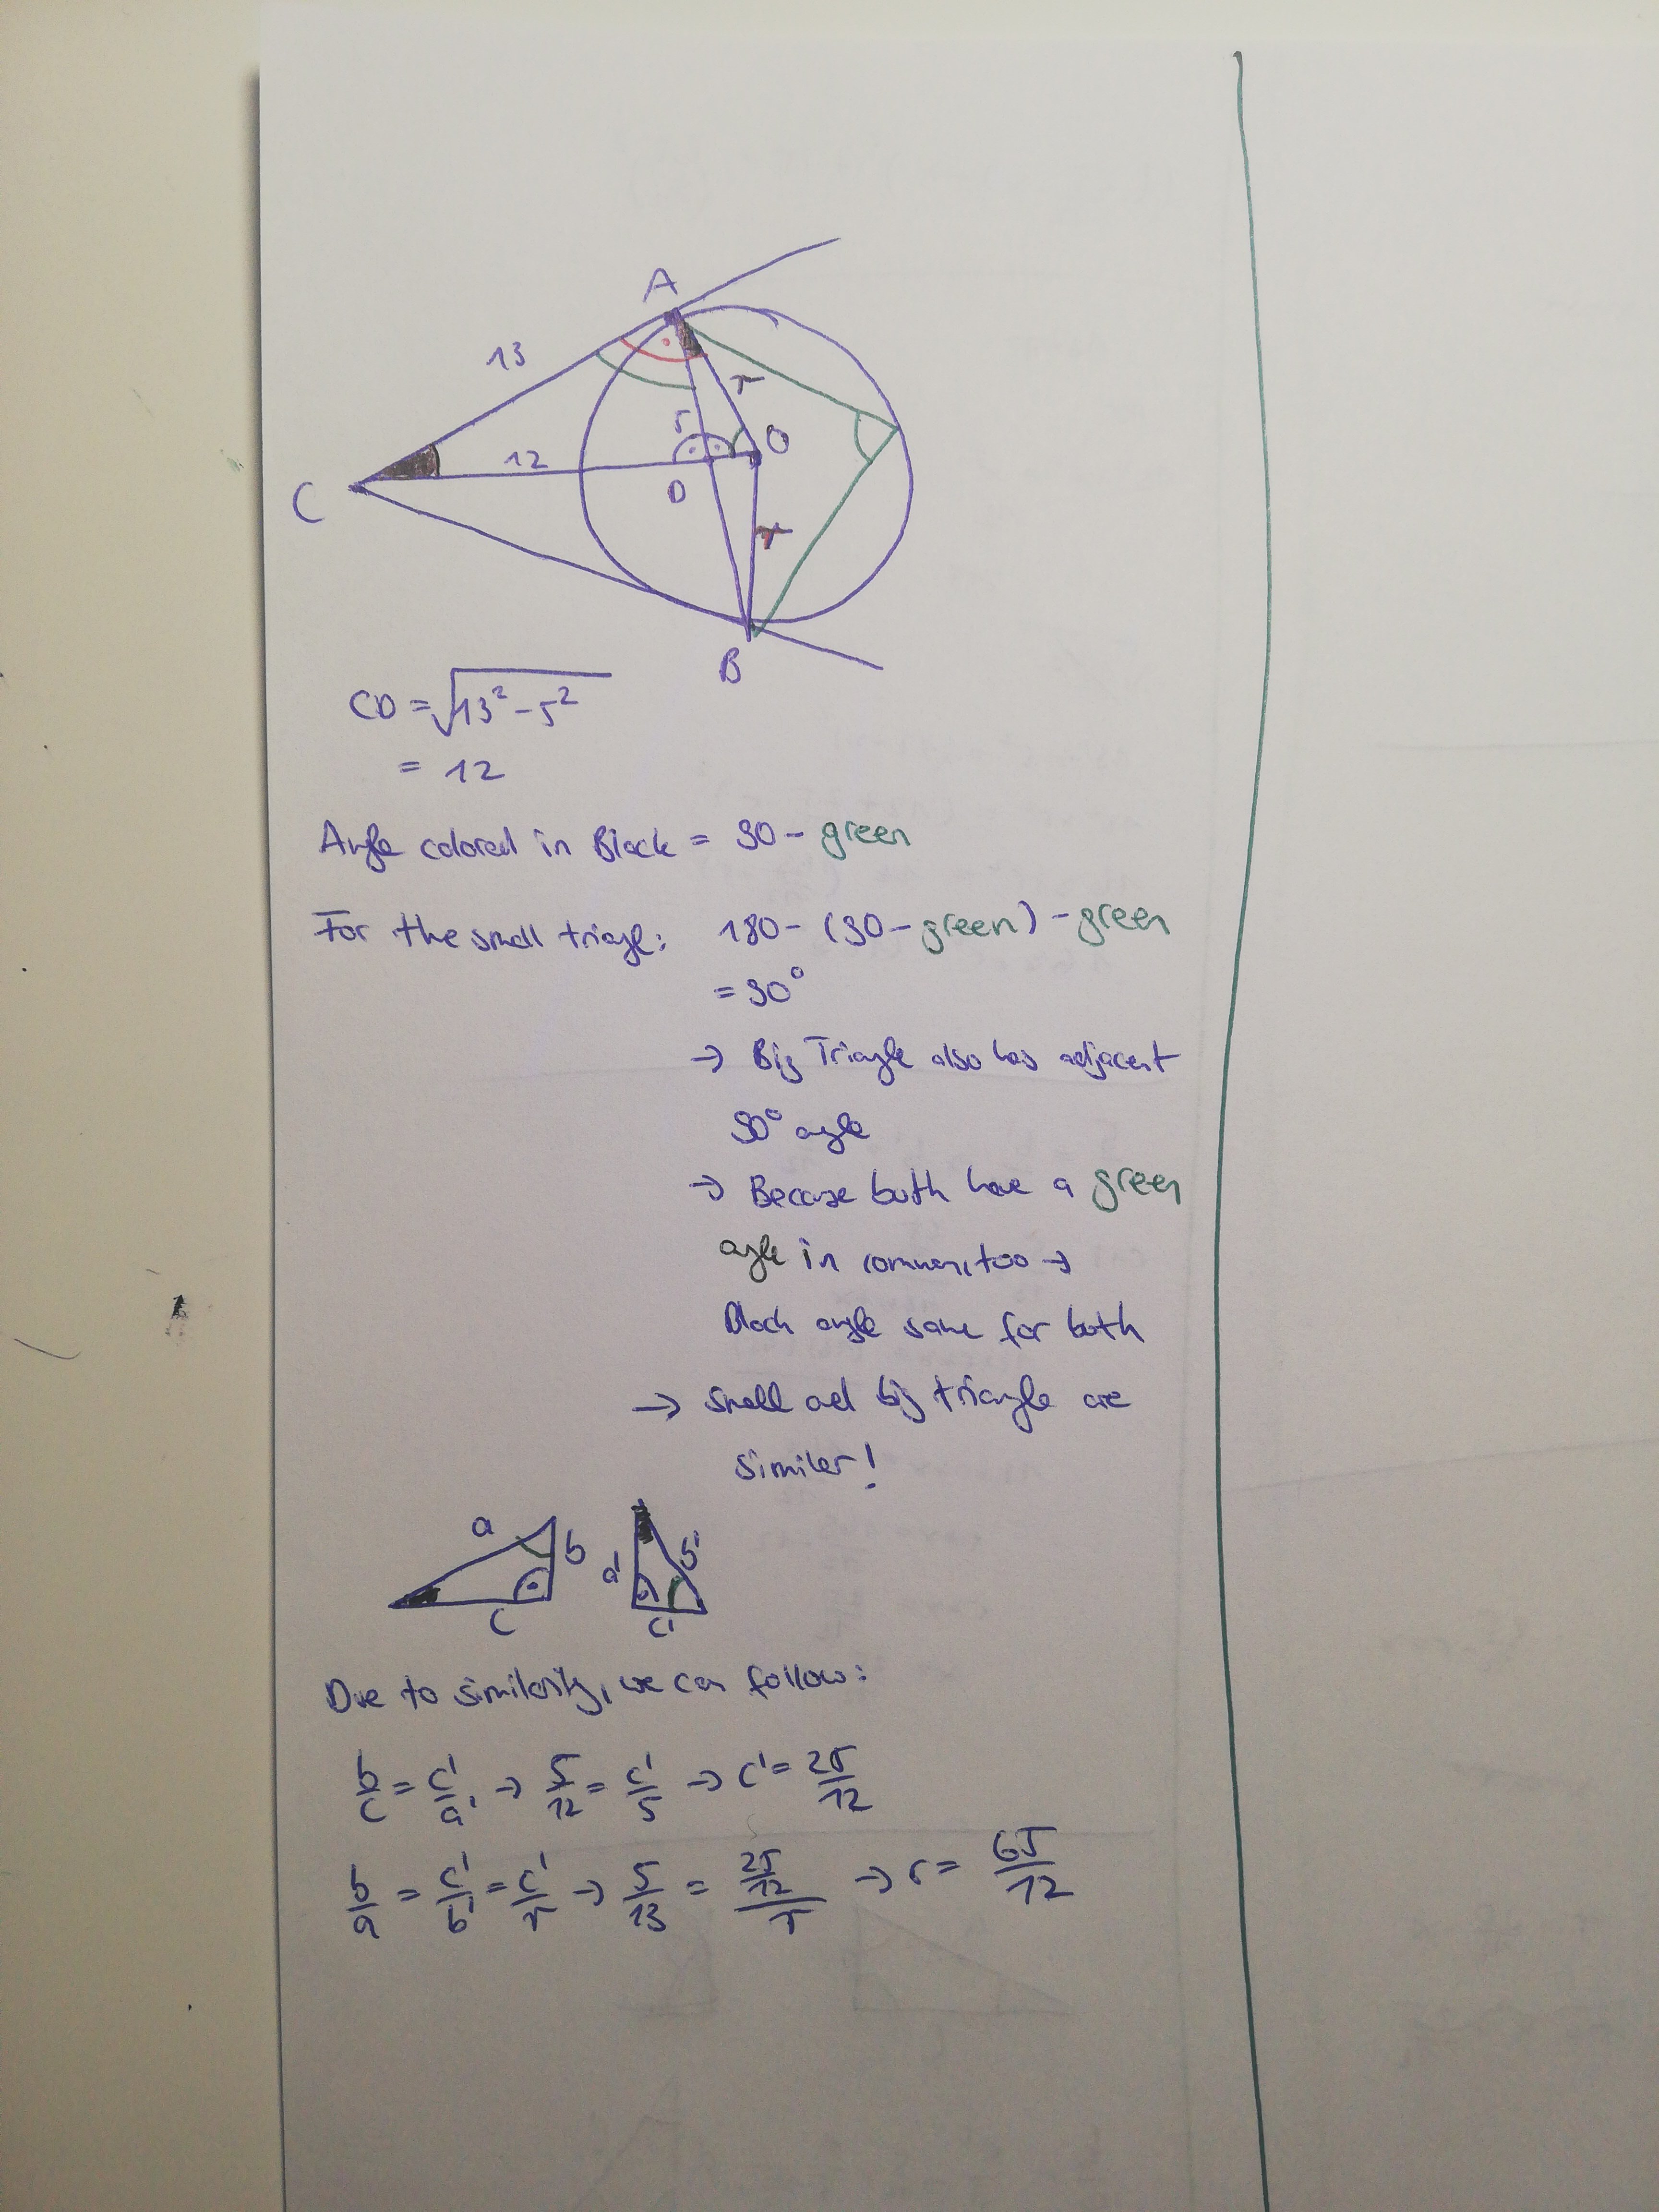 A
13
r
5
O
12
D
C
r
B
CD = √13² - 5²
= 12
Angle colored in Black = 90 - green
For the small triagl: 180 - (90 - green) - green
= 90°
→ Big Triangle also has adjacent
90° angle
→ Because both have a green
angle in common, too →
Black angle same for both
→ Small and big triangle are
similar!
a b a' b'
c c'
Due to similarity, we can follow:
b/c = c'/a' → 5/12 = c'/5 → c' = 25/12
b/a = c'/b' = c'/r → 5/13 = (25/12)/r → r = 65/12